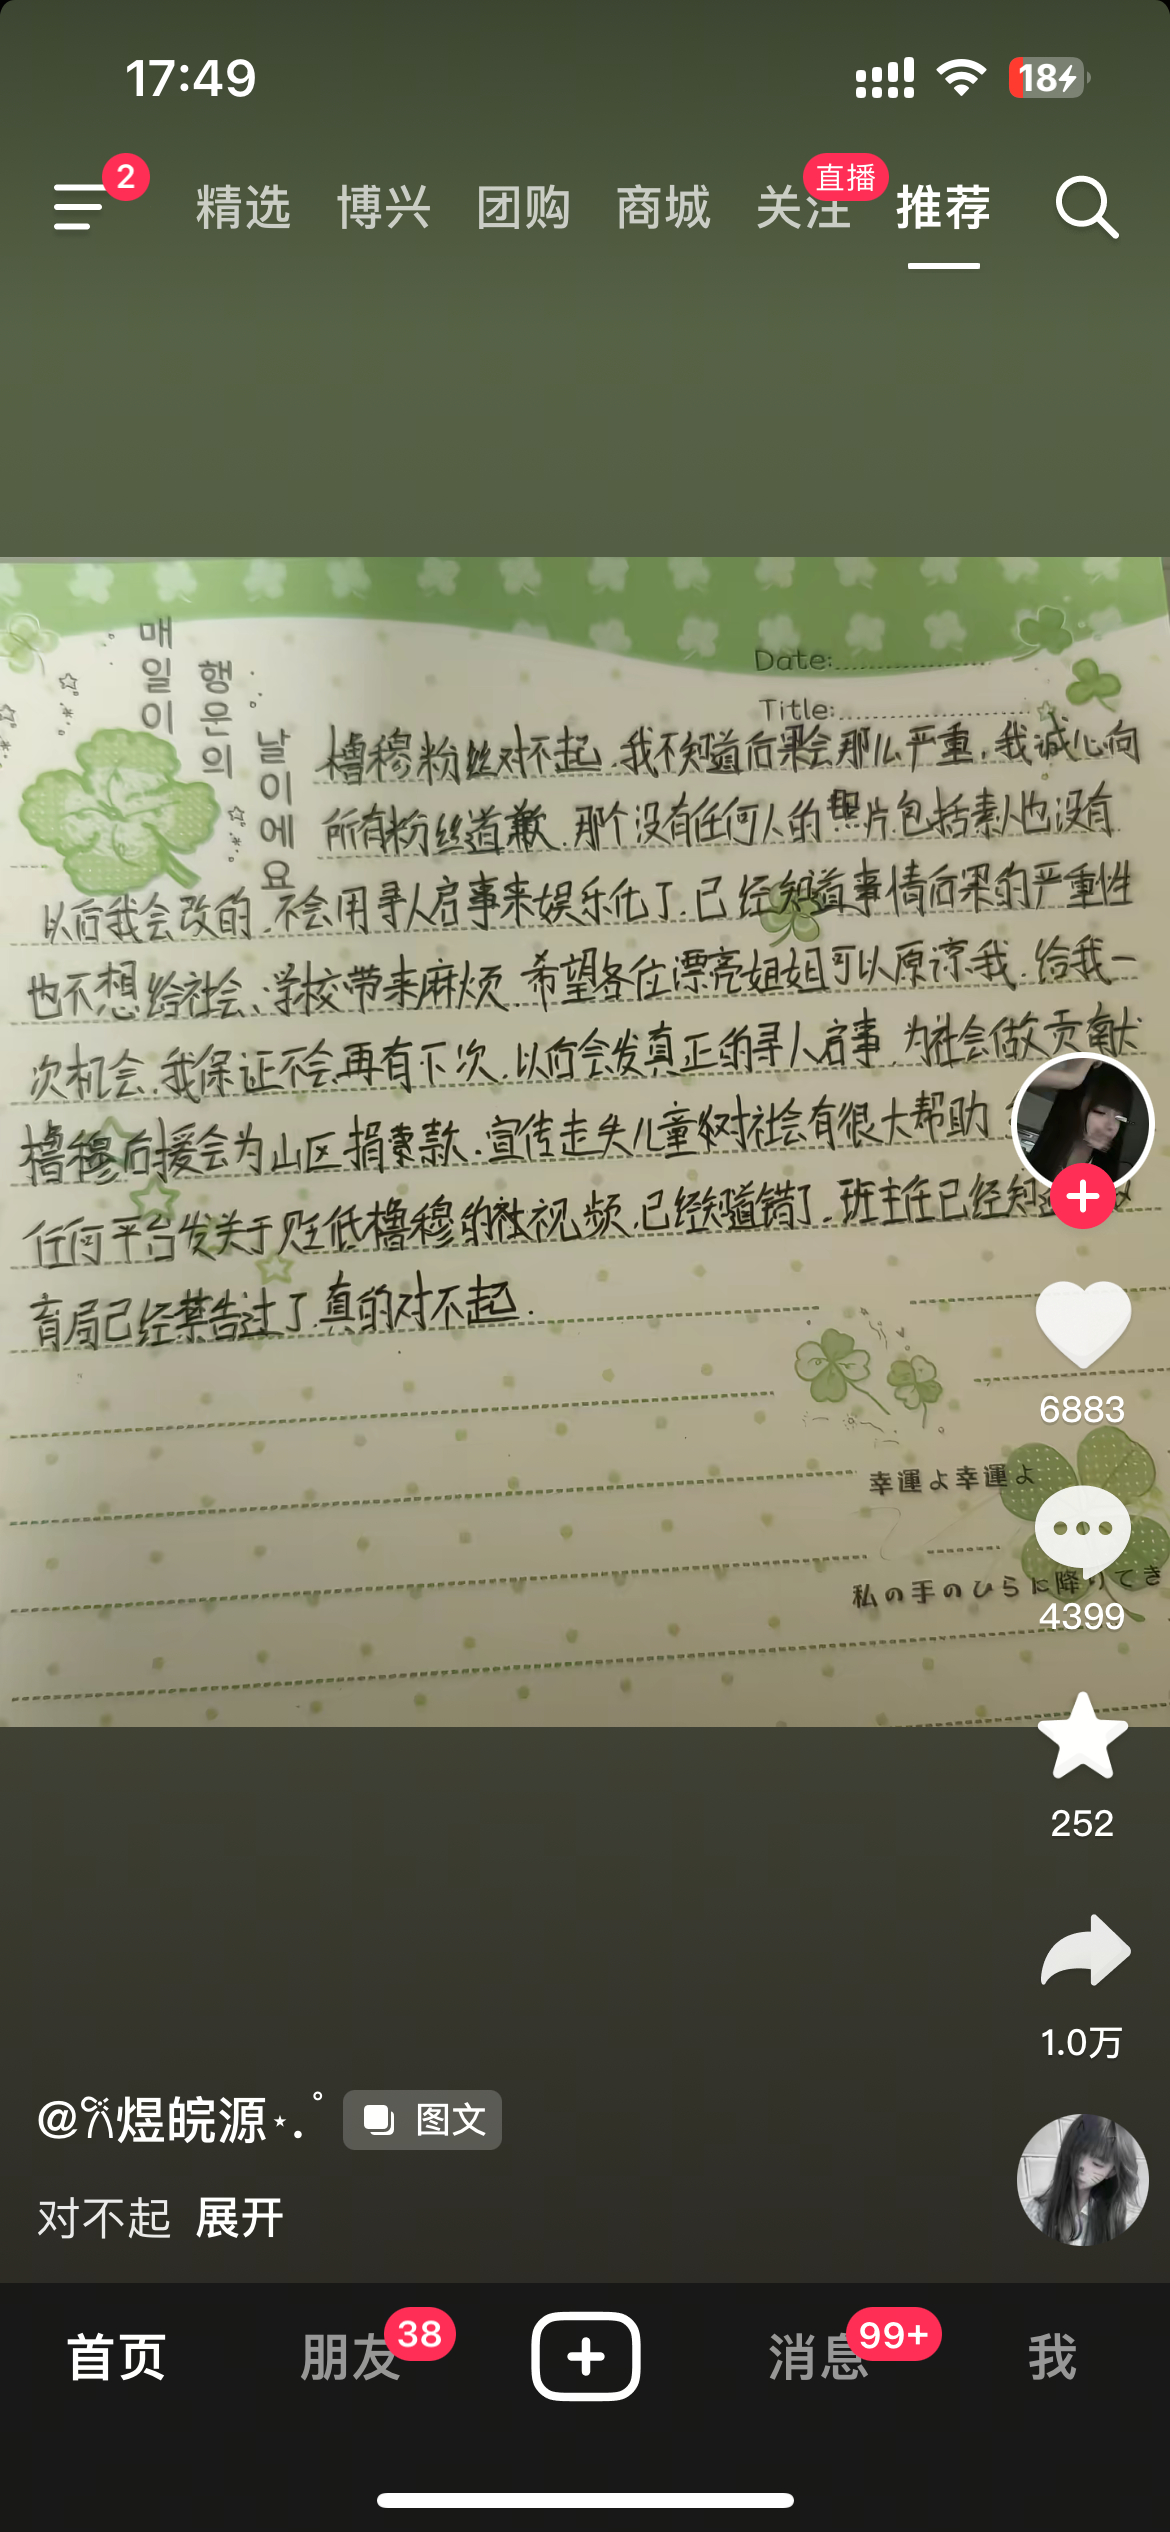 17:49
18
2
精选 博兴 团购 商城 关注 直播 推荐
매일이
행운의
날이에요
Date:
Title:
橹穆粉丝对不起.我不知道后果会那么严重.我诚心向
所有粉丝道歉.那个没有任何人的照片包括素人也没有
以后我会改的.不会用寻人启事来娱乐化了.已经知道事情后果的严重性
也不想给社会、学校带来麻烦.希望各位漂亮姐姐可以原谅我.给我一
次机会.我保证不会再有下次.以后会发真正的寻人启事.为社会做贡献
橹穆后援会为山区捐款.宣传走失儿童对社会有很大帮助
任何平台发关于贬低橹穆的视频.已经知道错了.班主任已经知
育局已经警告过了.真的对不起.
幸運よ幸運よ
私の手のひらに降りてき
6883
4399
252
1.0万
@煜皖源 图文
对不起 展开
首页 朋友 38 消息 99+ 我